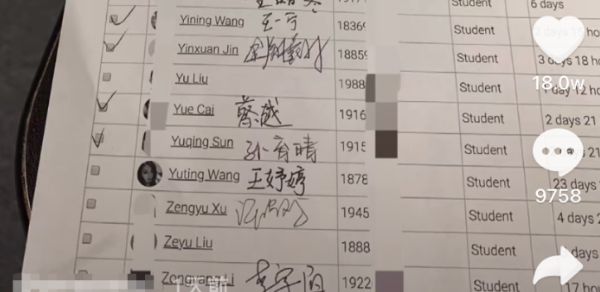 Student 6 days
Yining Wang 王一宁 1836 Student
Yinxuan Jin 1885 Student 3 days 18
Yu Liu 1988 Student day 12
18.0w
Yue Cai 蔡越 1916 Student 2 days 21
Yuqing Sun 孙育晴 1915 Student 2 days
9758
Yuting Wang 王妤婷 1878 Student 23 days
Zengyu Xu 1945 Student 4 days
Zeyu Liu 1888 Student days
1922 Student 17